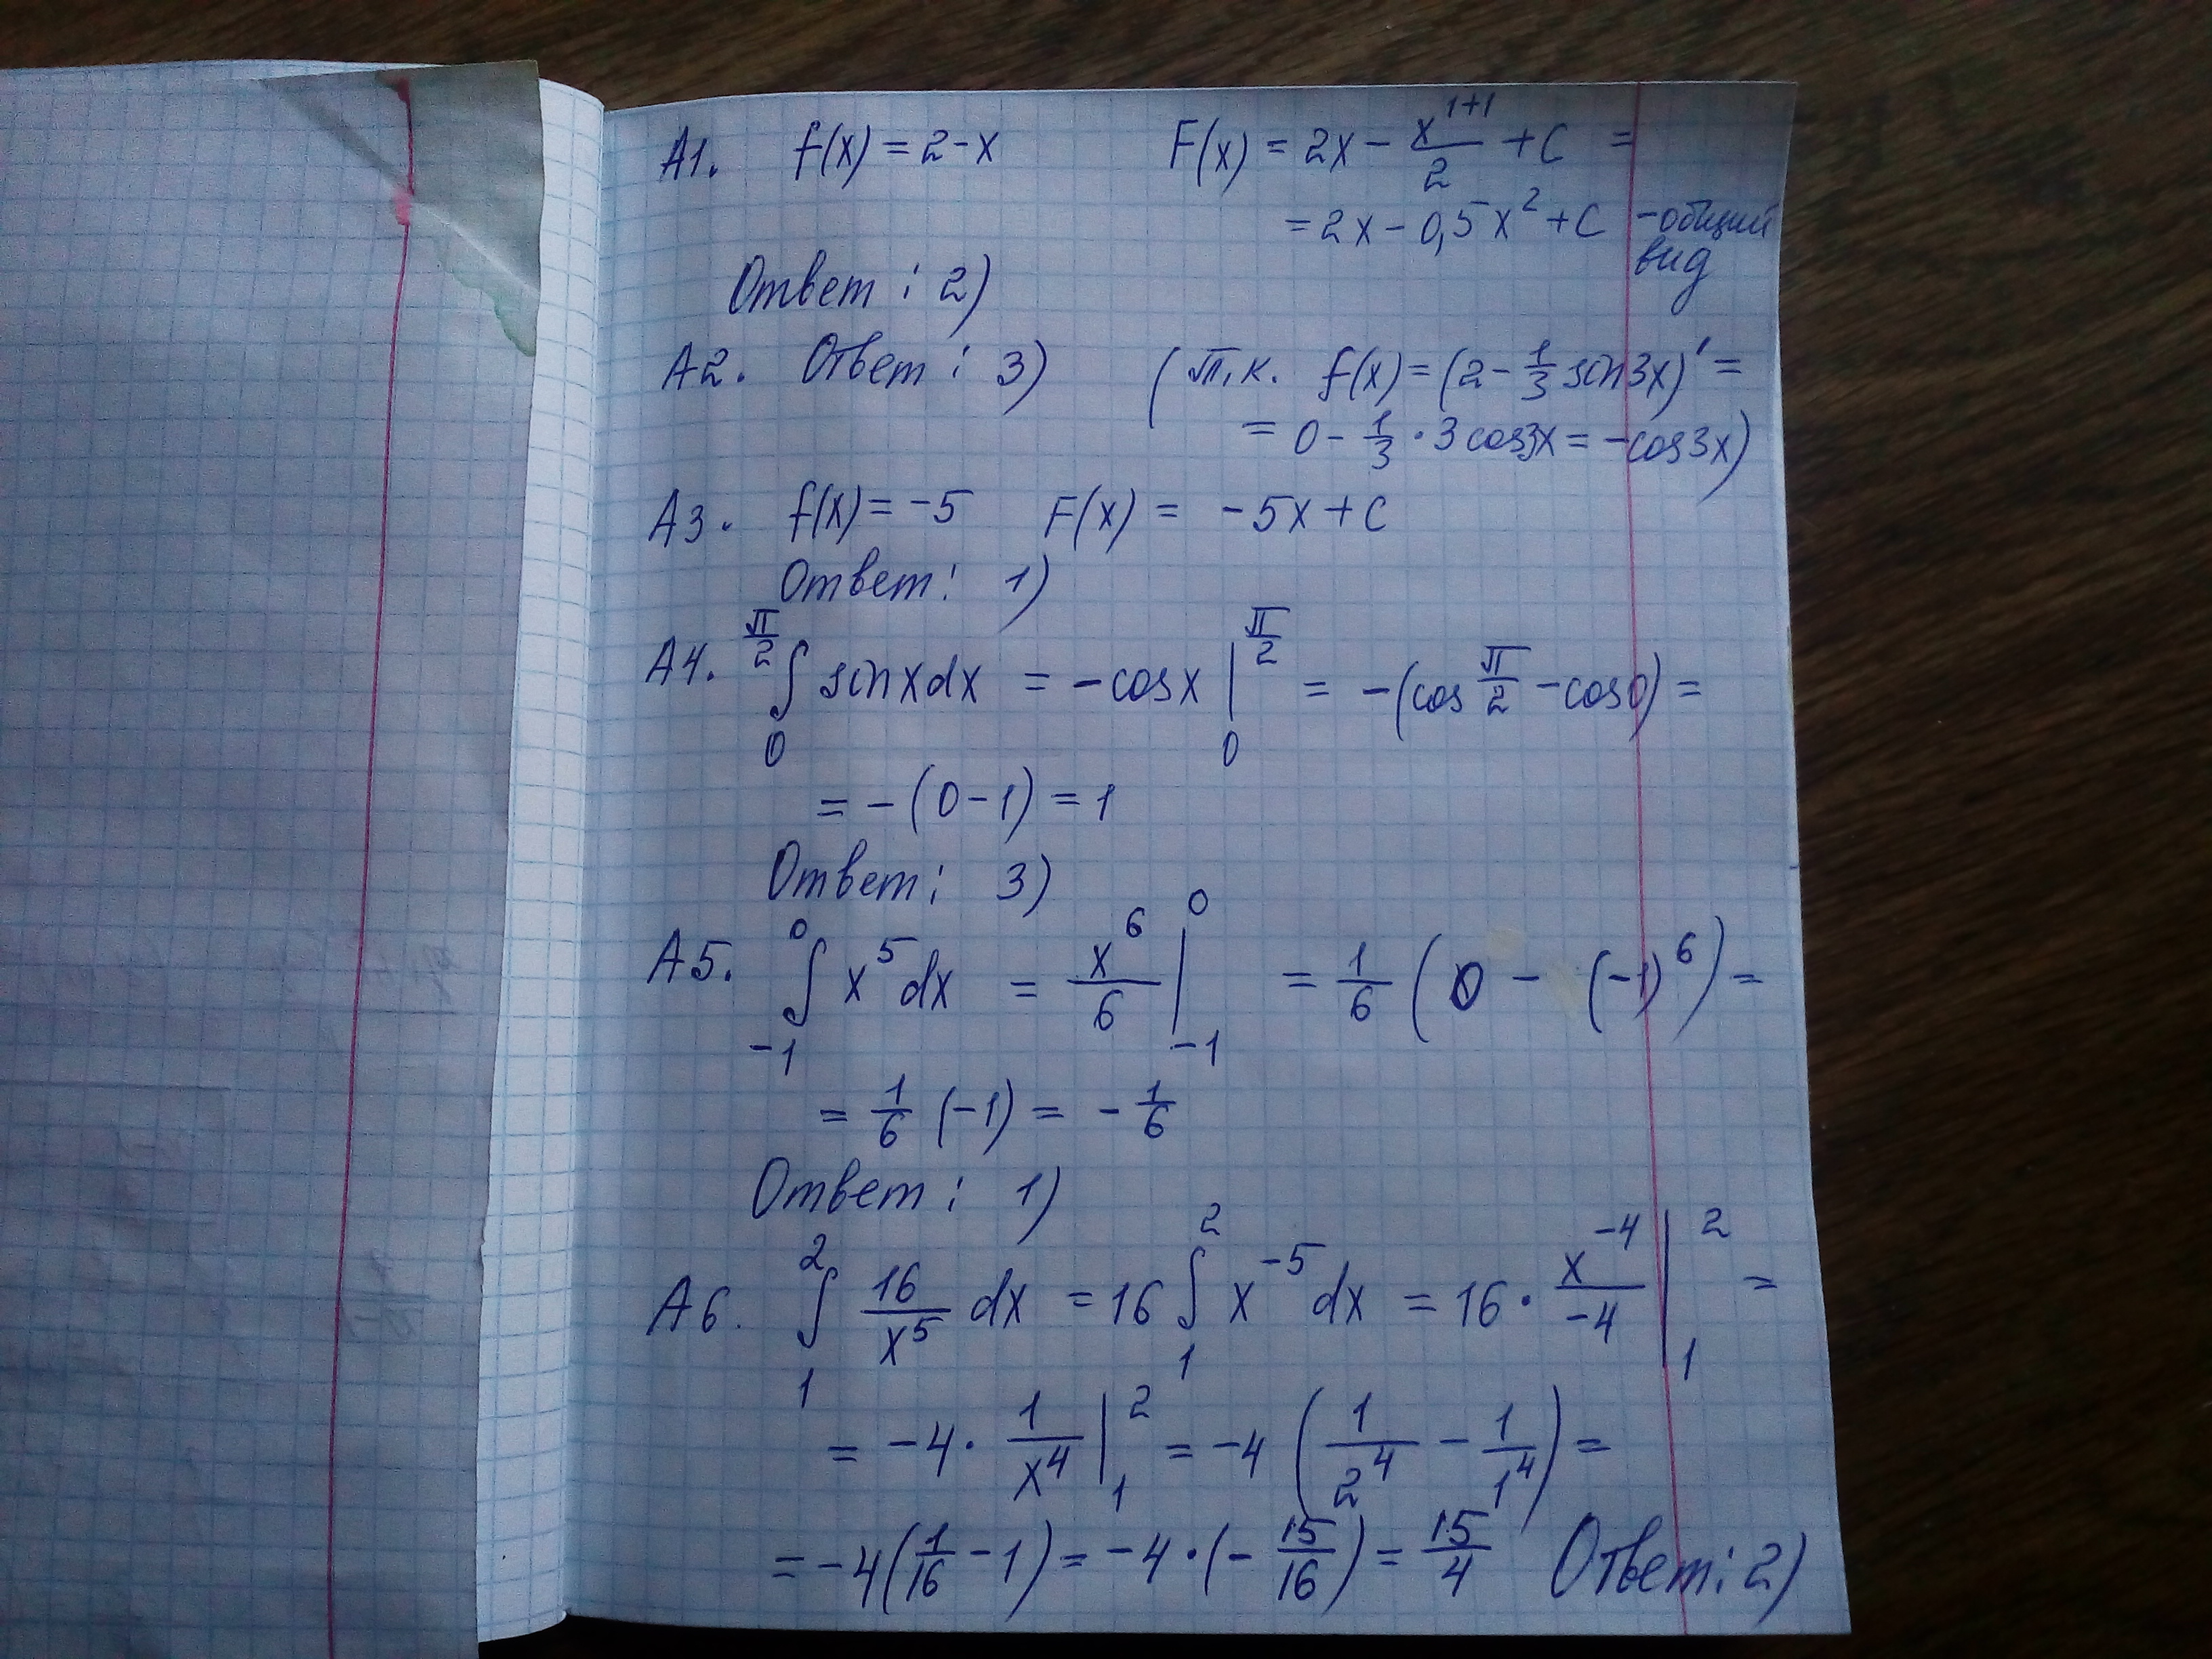 А1. f(x) = 2-x F(x) = 2x - x^(1+1)/2 + C =
= 2x - 0,5x² + C - общий
вид
Ответ: 2)
А2. Ответ: 3) (т.к. f(x) = (2 - 1/3 sin3x)' =
= 0 - 1/3 · 3cos3x = -cos3x)
А3. f(x) = -5 F(x) = -5x + C
Ответ: 1)
А4. ∫₀^(π/2) sinxdx = -cosx |₀^(π/2) = -(cos π/2 - cos0) =
= -(0-1) = 1
Ответ: 3)
А5. ∫₋₁⁰ x⁵dx = x⁶/6 |₋₁⁰ = 1/6 (0 - (-1)⁶) =
= 1/6 (-1) = - 1/6
Ответ: 1)
А6. ∫₁² 16/x⁵ dx = 16 ∫₁² x⁻⁵dx = 16 · x⁻⁴/-4 |₁² =
= -4 · 1/x⁴ |₁² = -4 (1/2⁴ - 1/1⁴) =
= -4(1/16 - 1) = -4 · (- 15/16) = 15/4 Ответ: 2)